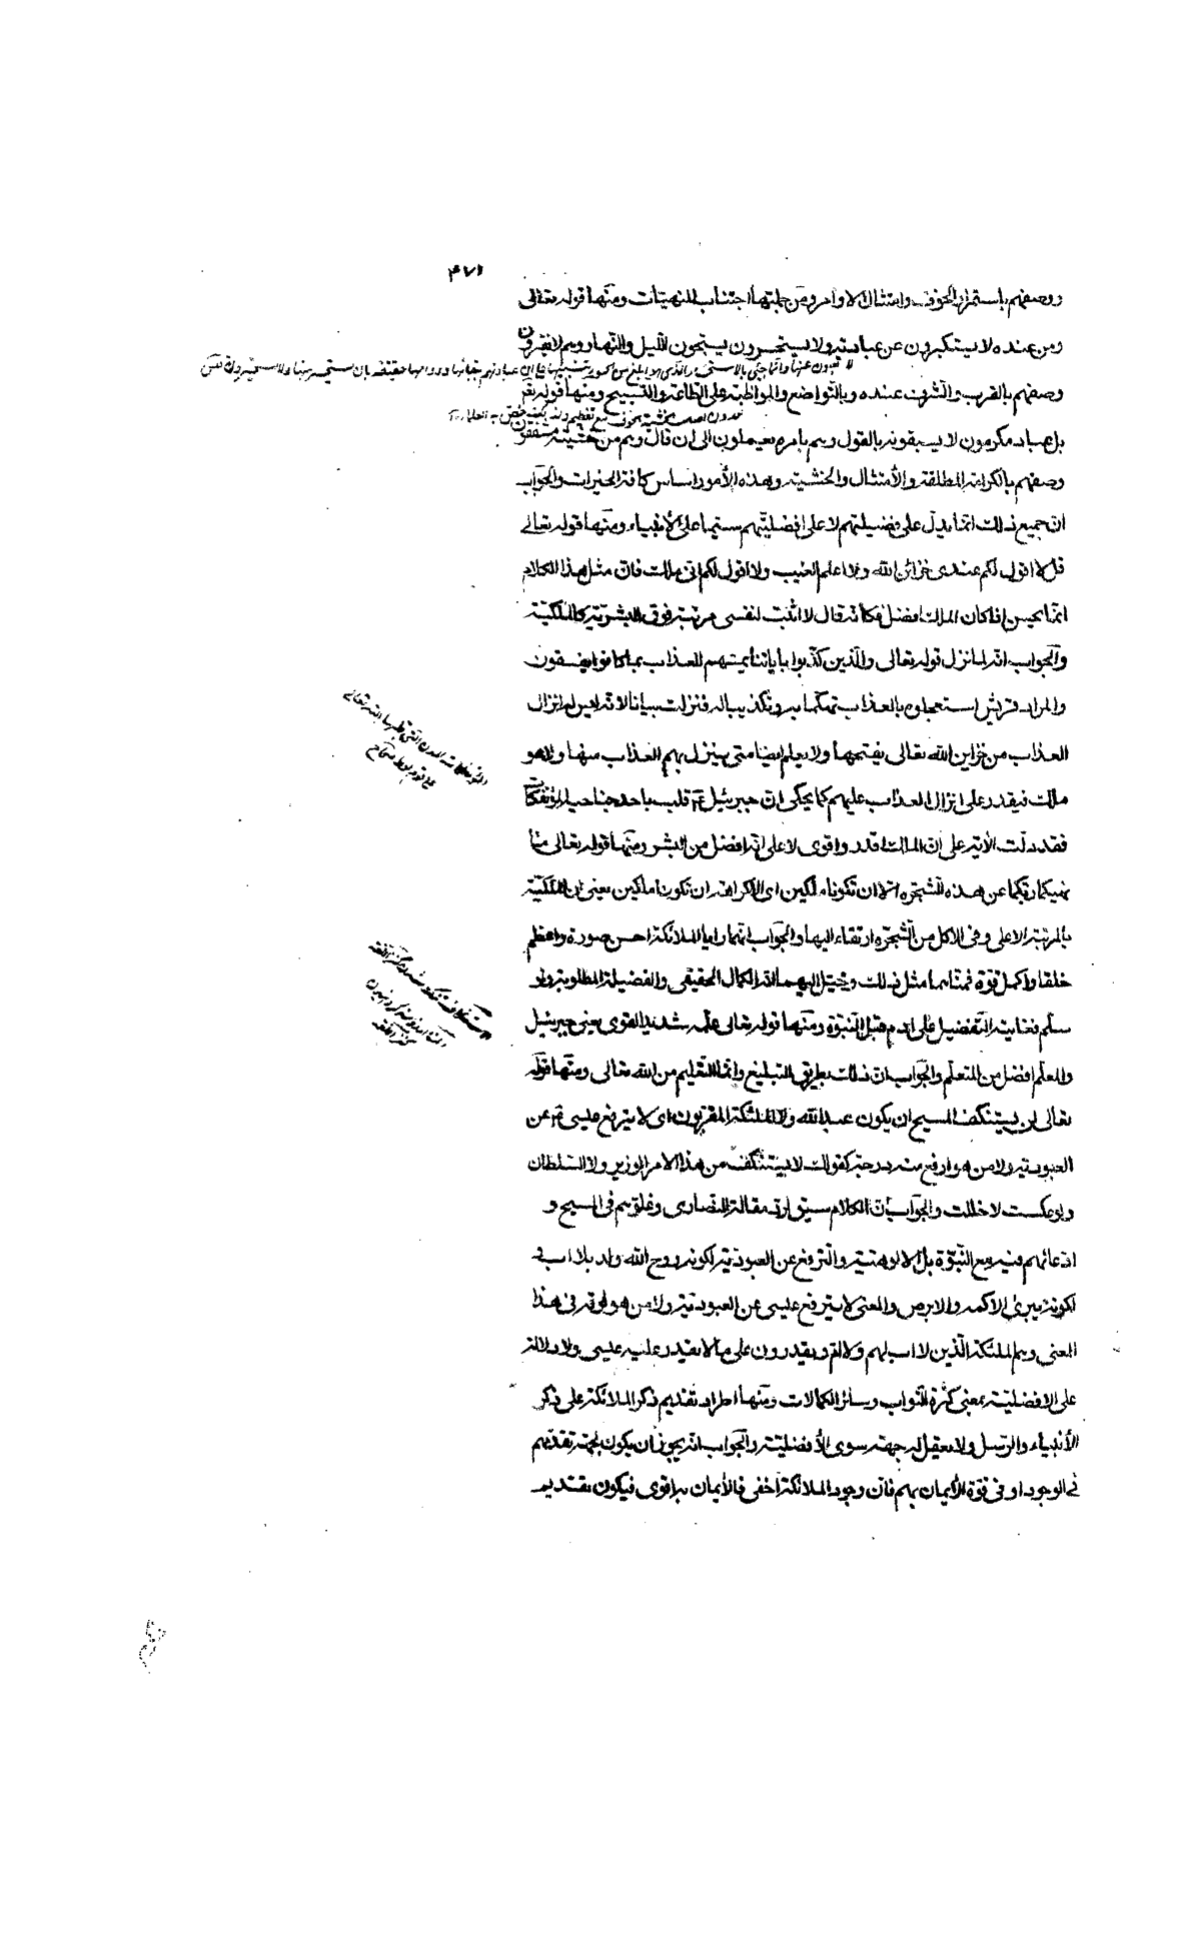 ۴۷۱
وصفهم باستمرار الخوف وامتثال الاوامر ومن جملتها اجتناب المنهيات ومنها قوله تعالى
ومن عنده لا يستكبرون عن عبادته ولا يستحسرون يسبحون الليل والنهار وهم لا يفترون
وصفهم بالقرب والشرف عنده وبالتواضع والمواظبة على الطاعة والتسبيح ومنها قوله تع
بل عباد مكرمون لا يسبقونه بالقول وهم بامره يعملون الى ان قال وهم من خشيته مشفقون
وصفهم بالكرامة المطلقة والأمتثال والخشية وهذه الأمور اساس كافة الخيرات والجواب
ان جميع ذلك انما يدل على فضيلتهم لا على افضليتهم سيما على الأنبياء ومنها قوله تعالى
قل لا اقول لكم عندى خزائن الله ولا اعلم الغيب ولا اقول لكم انى ملك فان مثل هذا الكلام
انما يحسن اذا كان الملك افضل فكانه قال لا اثبت لنفسى مرتبة فوق البشرية كالملكية
والجواب انه لما نزل قوله تعالى والذين كذبوا باياتنا يمسهم العذاب بما كانوا يفسقون
والمراد قريش استعجلوه بالعذاب تهكما به وتكذيبا له فنزلت بيانا لانه ليس له انزال
العذاب من خزاين الله تعالى يفتحها ولا يعلم ايضا متى ينزل بهم العذاب منها ولا هو
ملك فيقدر على انزال العذاب عليهم كما يحكى ان جبرئيل ع قلب باحد جناحيه المؤتفكات
فقد دلت الأية على ان الملك اقدر واقوى لا على انه افضل من البشر ومنها قوله تعالى ما
نهيكما ربكما عن هذه الشجرة الا ان تكونا ملكين اى الا كراهة ان تكونا ملكين يعنى ان الملكية
بالمرتبة الاعلى وفى الاكل من الشجرة ارتقاء اليها والجواب انهما رايا الملائكة احسن صورة واعظم
خلقا واكمل قوة فمناهما مثل ذلك وخيل اليهما انه الكمال الحقيقى والفضيلة المطلوبة ولو
سلم فغايته التفضيل على ادم قبل النبوة ومنها قوله تعالى علمه شديد القوى يعنى جبرئيل
والمعلم افضل من المتعلم والجواب ان ذلك بطريق التبليغ وانما التعليم من الله تعالى ومنها قوله
تعالى لن يستنكف المسيح ان يكون عبد الله ولا الملئكة المقربون اى لا يترفع عيسى ع عن
العبودية ولا من هو ارفع منه درجة كقولك لا يستنكف من هذا الامر الوزير ولا السلطان
ولو عكست لاخللت والجواب ان الكلام سيق لرد مقالة النصارى وغلوهم فى المسيح و
ادعائهم فيه مع النبوة بل الالوهية والترفع عن العبودية لكونه روح الله ولد بلا اب و
لكونه يبرئ الاكمه والابرص والمعنى لا يترفع عيسى عن العبودية ولا من هو فوقه فى هذا
المعنى وهم الملئكة الذين لا اب لهم ولا ام ويقدرون على ما لا يقدر عليه عيسى ولا دلالة
على الافضلية بمعنى كثرة الثواب وسائر الكمالات ومنها اطراد تقديم ذكر الملائكة على ذكر
الأنبياء والرسل ولا يعقل له جهة سوى الأفضلية والجواب انه يجوز ان يكون بجهة تقدمهم
فى الوجود او فى قوة الأيمان بهم فان وجود الملائكة اخفى فالأيمان به اقوى فيكون بتقديم